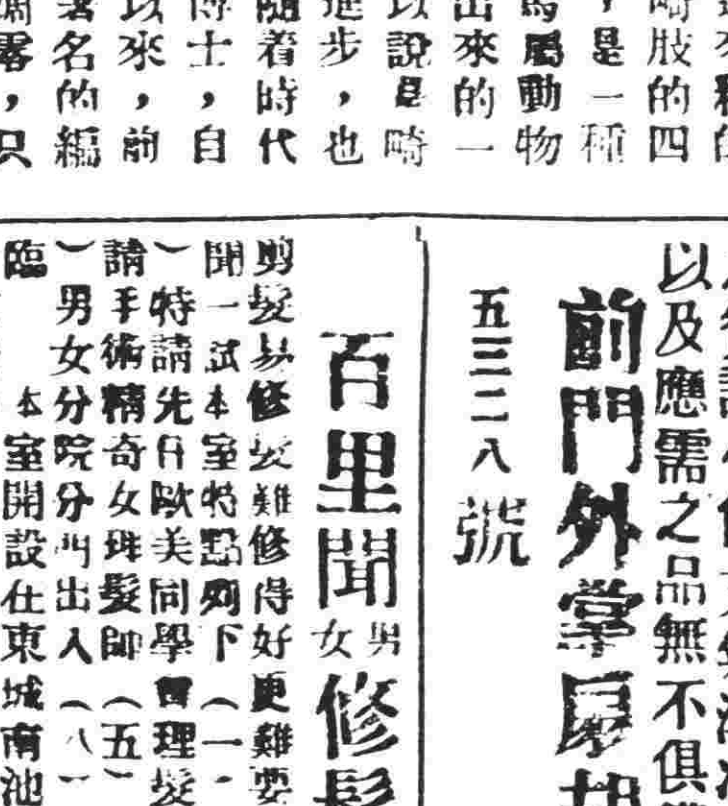 崎肢的四
，是一種
馬屬動物
出來的一
以說是畸
進步，也
隨着時代
博士，自
以來，前
著名的編
，只
以及應需之品無不俱
前門外掌扇胡
五三二八號
百里聞男女修髮
剪髮易修髮難修得好更難要
聞一試本室特點列下（一
）特請先日歐美同學會理髮
請手術精奇女理髮師（五）
）男女分院分門出入（八
臨　本室開設在東城南池